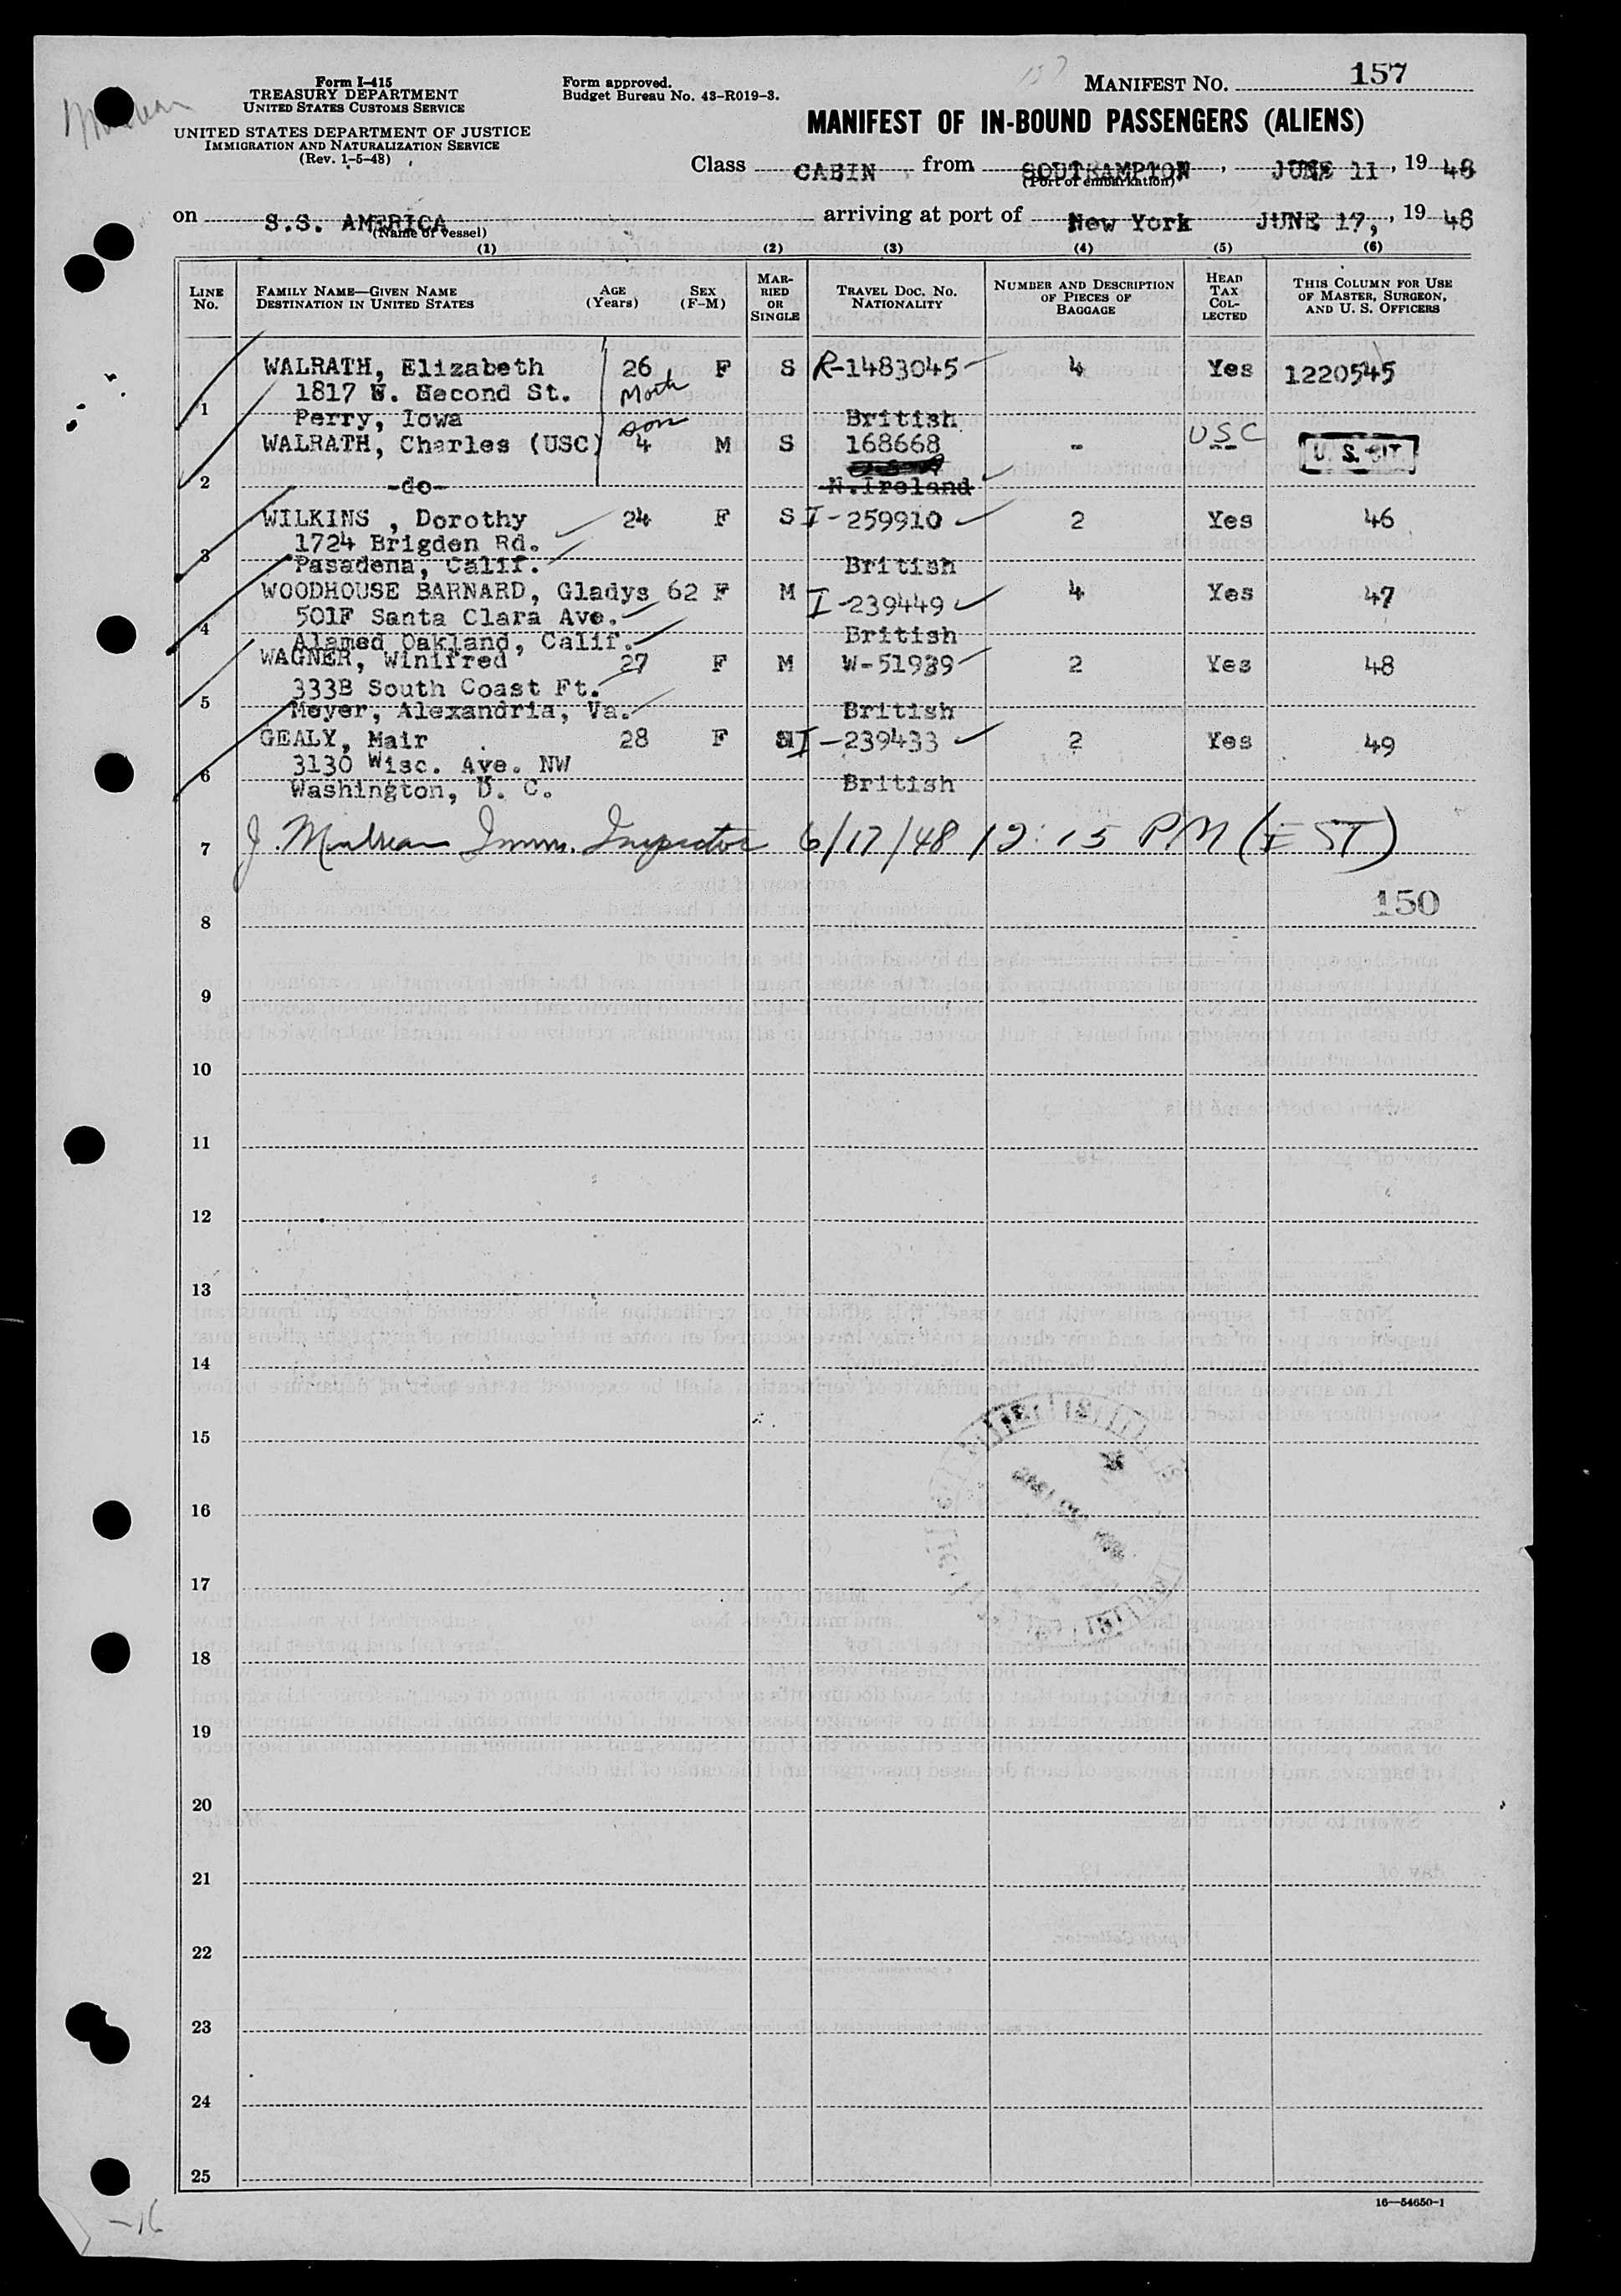 157
Form I-415
TREASURY DEPARTMENT
UNITED STATES CUSTOMS SERVICE
UNITED STATES DEPARTMENT OF JUSTICE
IMMIGRATION AND NATURALIZATION SERVICE
(Rev. 1-5-48)
Form approved.
Budget Bureau No. 43-R019-3.
MANIFEST NO. 157
MANIFEST OF IN-BOUND PASSENGERS (ALIENS)
Class CABIN from SOUTHAMPTON, JUNE 11, 19 48
(Port of embarkation)
on S.S. AMERICA arriving at port of New York JUNE 17, 19 48
(Name of vessel)
(1) (2) (3) (4) (5) (6)
LINE NO. FAMILY NAME—GIVEN NAME DESTINATION IN UNITED STATES AGE (Years) SEX (F-M) MARRIED OR SINGLE TRAVEL DOC. NO. NATIONALITY NUMBER AND DESCRIPTION OF PIECES OF BAGGAGE HEAD TAX COLLECTED THIS COLUMN FOR USE OF MASTER, SURGEON, AND U. S. OFFICERS
WALRATH, Elizabeth 26 F S R-1483045 4 Yes 1220545
1817 Second St. Moth
1 Perry, Iowa British
son
WALRATH, Charles (USC) 4 M S 168668 - USC -- U. S. CIT.
2 -do- N.Ireland
WILKINS , Dorothy 24 F S I-259910 2 Yes 46
1724 Brigden Rd.
3 Pasadena, Calif. British
WOODHOUSE BARNARD, Gladys 62 F M I-239449 4 Yes 47
501F Santa Clara Ave.
4 Alamed Oakland, Calif. British
WAGNER, Winifred 27 F M W-51939 2 Yes 48
333B South Coast Ft.
5 Meyer, Alexandria, Va. British
GEALY, Mair 28 F I-239433 2 Yes 49
3130 Wisc. Ave. NW
6 Washington, D. C. British
7 J. Imm. Inspector 6/17/48 12:15 PM (EST)
150
8
9
10
11
12
13
14
15
16
17
18
19
20
21
22
23
24
25
16—54650-1
-16